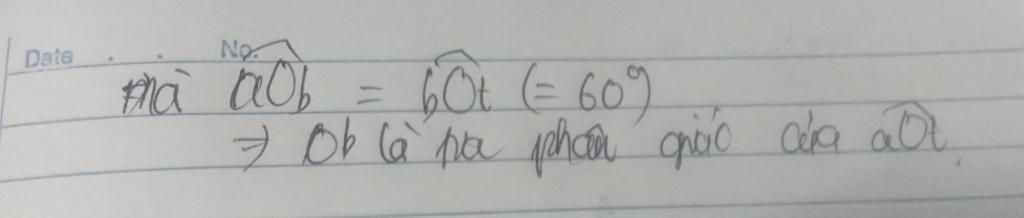 Date . . No.
mà aÔb = bÔt (= 60°)
⇒ Ob là tia phân giác của aÔt.